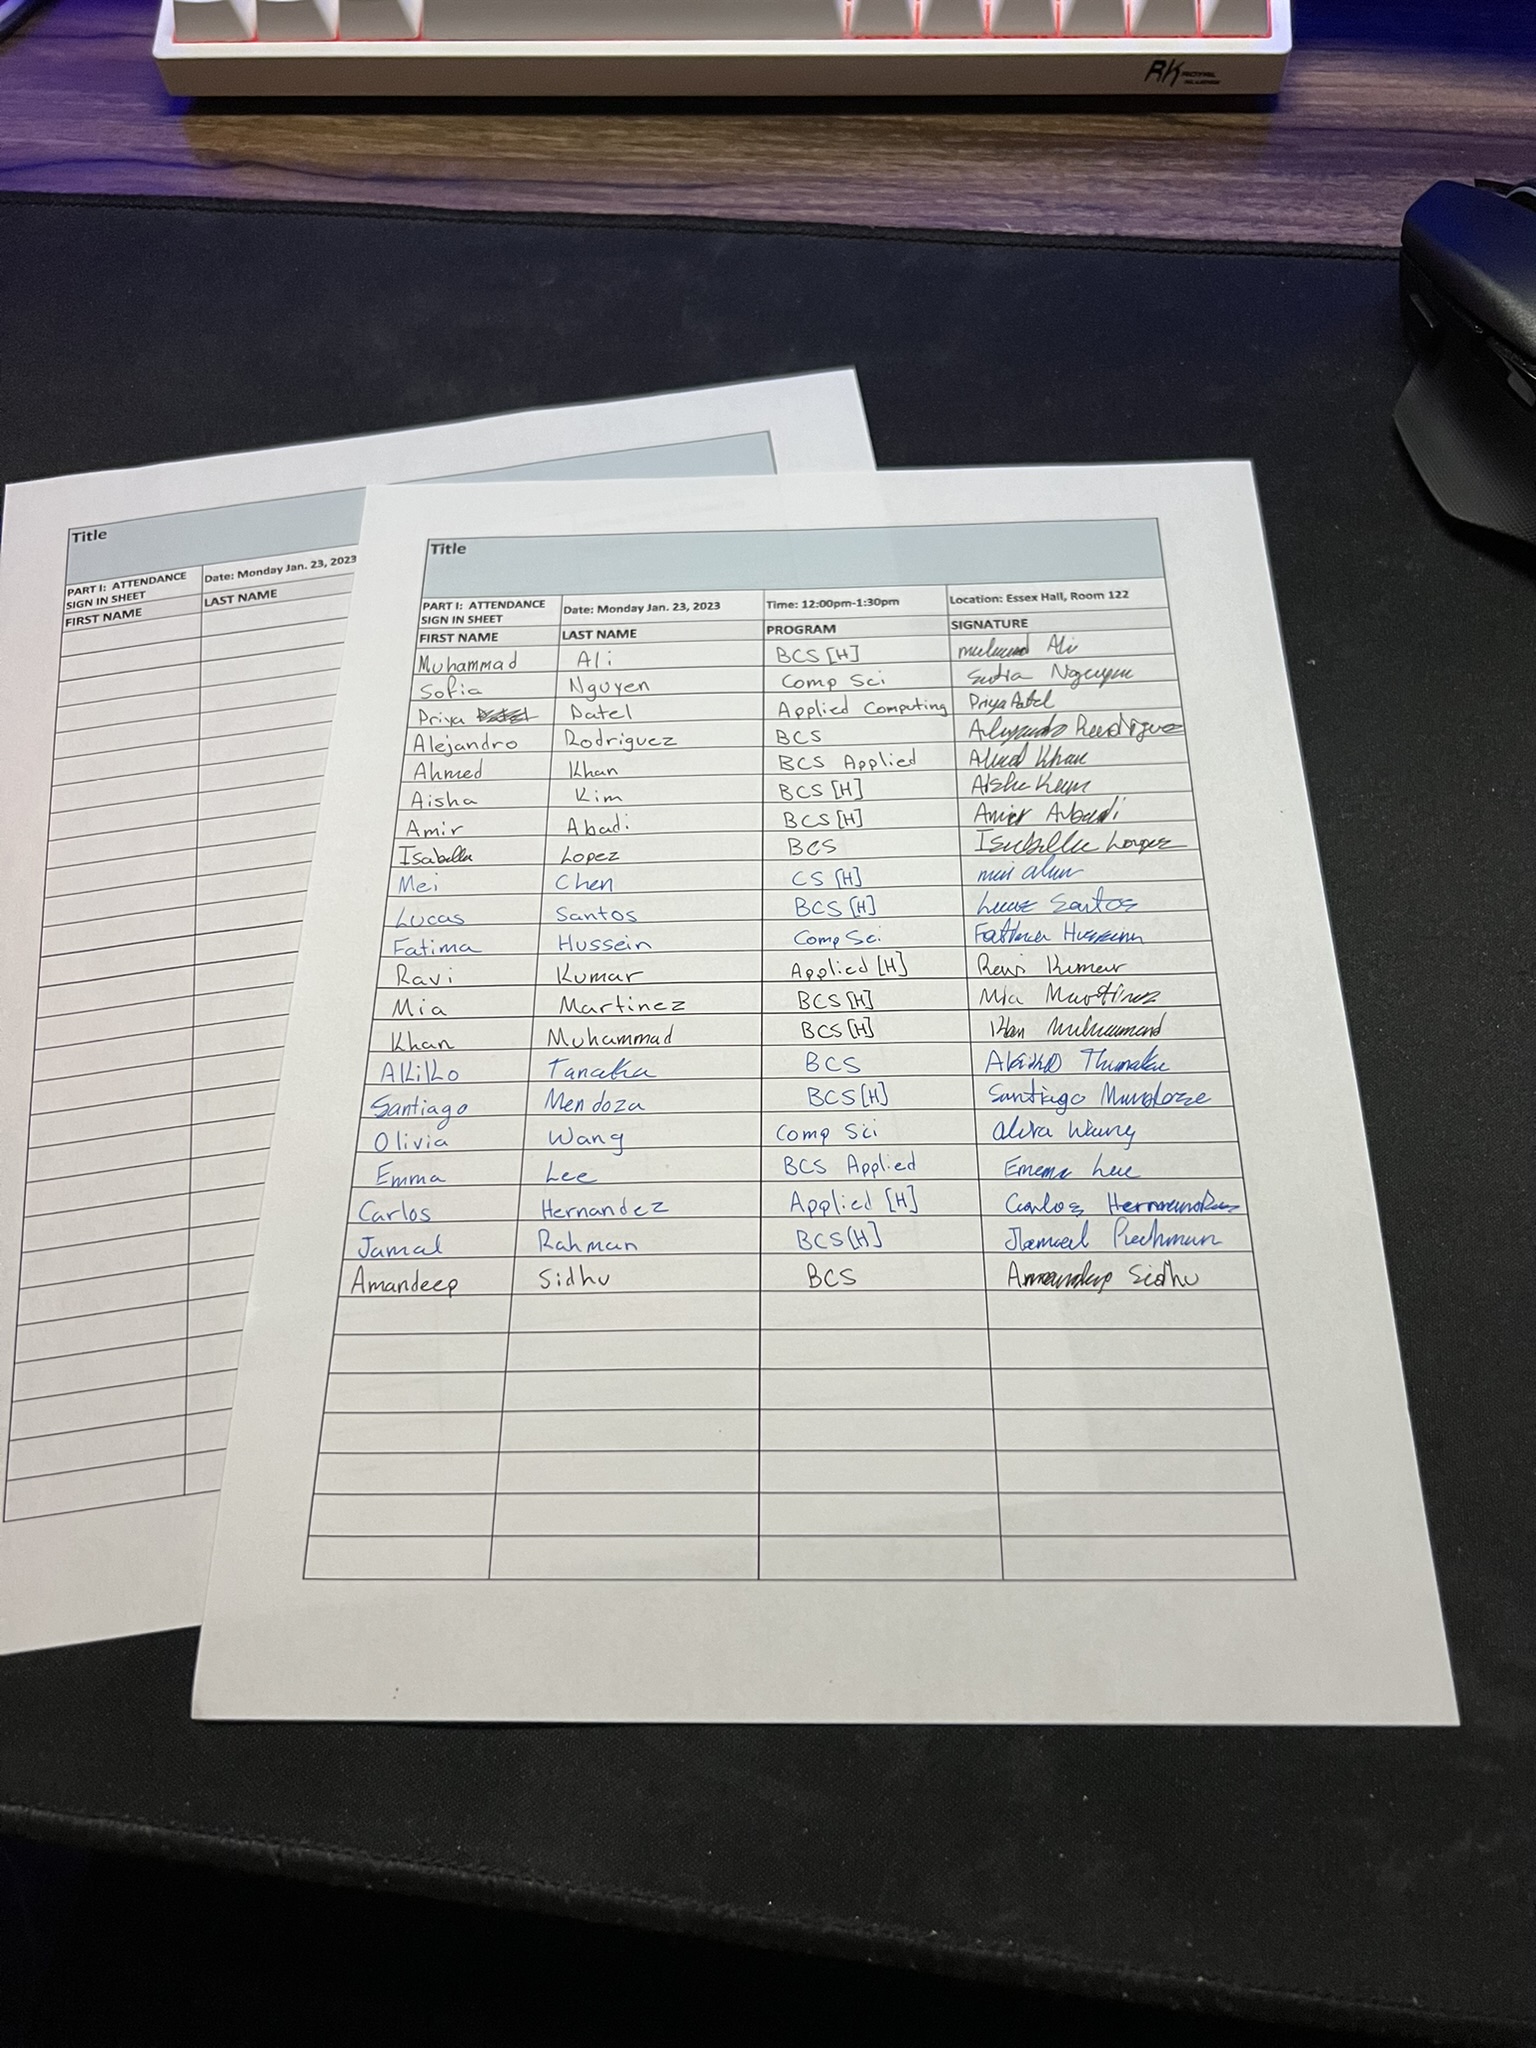 RK ROYAL KLUDGE
Title
PART I: ATTENDANCE SIGN IN SHEET Date: Monday Jan. 23, 2023
FIRST NAME LAST NAME
Title
PART I: ATTENDANCE SIGN IN SHEET Date: Monday Jan. 23, 2023 Time: 12:00pm-1:30pm Location: Essex Hall, Room 122
FIRST NAME LAST NAME PROGRAM SIGNATURE
Muhammad Ali BCS [H] Ali
Sofia Nguyen Comp Sci Nguyen
Priya Patel Applied Computing Priya Patel
Alejandro Rodriguez BCS Alejandro Rodriguez
Ahmed Khan BCS Applied Ahmed Khan
Aisha Kim BCS [H] Aisha
Amir Abadi BCS [H] Amir Abadi
Isabella Lopez BCS Isabella Lopez
Mei Chen CS [H]
Lucas Santos BCS [H] Lucas Santos
Fatima Hussein Comp Sci Fatima Hussein
Ravi Kumar Applied [H] Ravi Kumar
Mia Martinez BCS [H] Mia Martinez
Khan Muhammad BCS [H] Khan Muhammad
Akiko Tanaka BCS
Santiago Mendoza BCS [H] Santiago Mendoza
Olivia Wang Comp Sci Wang
Emma Lee BCS Applied Emma Lee
Carlos Hernandez Applied [H] Carlos Hernandez
Jamal Rahman BCS [H] Jamal Rahman
Amandeep Sidhu BCS Amandeep Sidhu